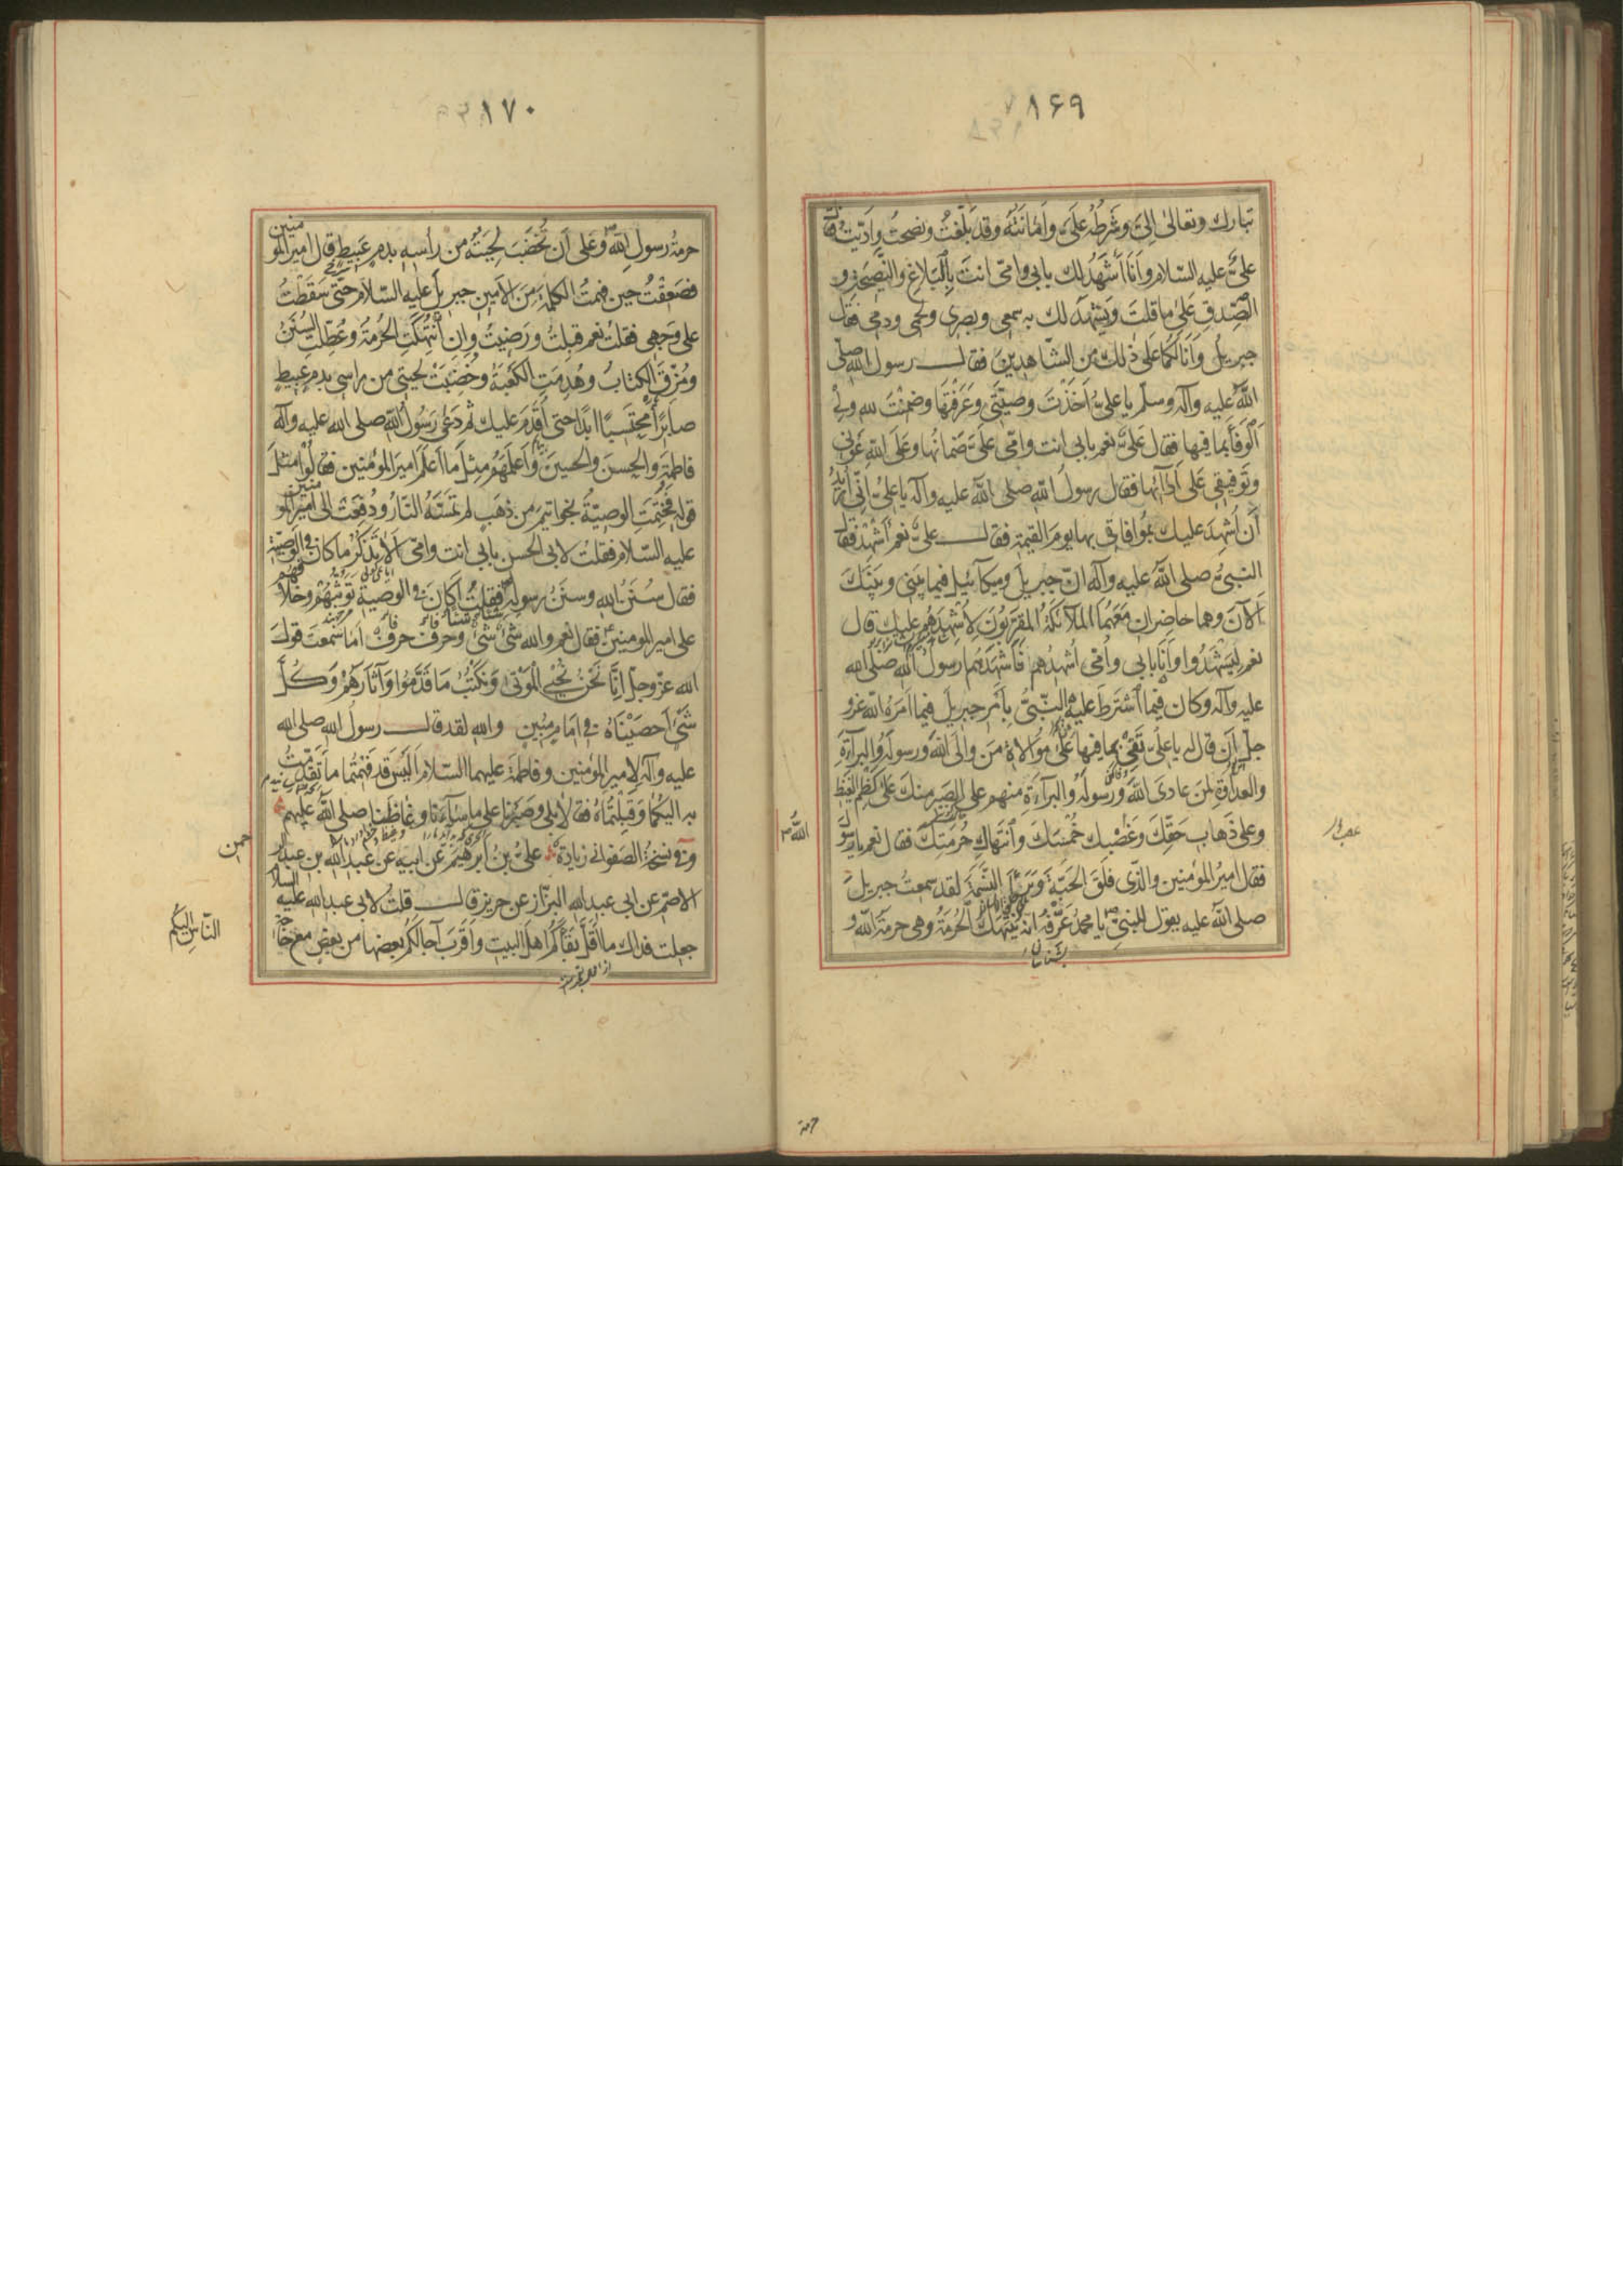 ۱۶۹
تبارك وتعالى اِلىَّ وشَرطُهُ عَلَىَّ واَمانَتُهُ وقد بَلَّغتُ ونصحتُ واَدّيتُ فقال
علىٌّ عليه السّلام واَنَا اَشهَدُ لك بابى وامّى انتَ بِالبَلاغِ والنَّصيحَةِ و
الصِّدقِ عَلىٰ ما قلتَ ويَشهَدُ لك به سمعى وبصرى ولحمى ودمى فقال
جبريلُ وَاَنَا لَكُما على ذٰلك من الشّاهدينَ فقال رسول الله صلّى
اللّٰهُ عليه وآله وسلّم يا علىُّ اَخَذتَ وصيّتى وعَرَفتَها وضمنتَ لله ولى
اَلوَفاءَ بما فيها فقال علىٌّ نعم بابى انت وامّى علىَّ ضمانُها وعَلَى اللّٰهِ عَونى
وتَوفيقى عَلى اَدآئِها فقال رسولُ اللّٰهِ صلى اللّٰه عليه وآله يا علىُّ اِنّى اُريدُ
اَن اُشهِدَ عليك بمُوافاتى بها يومَ القيمة فقال علىٌّ نعم اَشهِد فقال
النبىُّ صلى اللّٰه عليه وآله انّ جبريلَ وميكآئيل فيما بينى وبينَك
اَلآنَ وهما حاضران مَعَهُمَا الملآئكةُ المقرّبُونَ لِاُشهِدَهُم عليك قال
نعم لِيَشهَدُوا وَاَنَا بابى وامّى اُشهدُهم فاَشهَدَهُم رسولُ اللّٰهِ صلى الله
عليه وآله وكان فيما اَشتَرَطَ عليه النّبىُّ بِاَمرِ جبريلَ فيما اَمَرَهُ اللّٰه عزو
جلّ اَن قال له يا علىُّ تَفى بما فيها على مُوالاةِ مَن والَى اللّٰهَ ورسولَهُ والبرآءَةِ
والعداوةِ لِمَن عادىَ اللّٰهَ ورَسولَهُ والبرآءَةِ منهم على الصّبرِ منكَ عَلى كَظمِ الغَيظِ
وعلى ذَهابِ حَقِّكَ وغَصبِ خُمسِكَ وَانتهاكِ حُرمَتِكَ فقال نعم يا رسول
اللّٰه
فقال اميرُ المؤمنين والّذى فَلَقَ الحَبَّةَ وبَرَأَ النَّسَمَةَ لقد سمعتُ جبريلَ
صلى اللّٰه عليه يقول للنبىِّ يا محمدُ عَرِّفهُ انه يُنتَهَكُ الحُرمَةُ وهى حرمَةُ اللّٰهِ و
حرمة
۱۷۰
حرمةُ رسولِ اللّٰه وعَلى اَن تُخضَبَ لِحيَتُهُ من رأسِه بدمٍ عَبيطٍ قال امير المؤمنين
فصَعِقتُ حين فهمتُ الكلمةَ مِنَ الاَمينِ جبريلَ عليه السّلام حتّى سَقَطتُ
على وَجهى فقلتُ نعم قبِلتُ ورَضيتُ وان انتُهِكَتِ الحُرمَةُ وعُطِّلَتِ السُّنَنُ
ومُزِّقَ الكتابُ وهُدِمَتِ الكَعبَةُ وخُضِبَت لحيتى من راسى بدمٍ عبيطٍ
صابِرًا مُحتَسِبًا ابدًا حتى اَقدَمَ عليك ثم دَعٰى رَسُولُ اللّٰه صلى الله عليه وآله
فاطمةَ والحسنَ والحسينَ واَعلَمَهُم مِثلَ ما اَعلَمَ اميرَ المؤمنين فقالوا مثلَ
قولِه فخُتِمَتِ الوصيّةُ بخواتيمَ من ذهَبٍ لم تَمَسَّهُ النّارُ ودُفِعَت الى امير المؤمنين
عليه السّلام فقلتُ لابى الحسن بابى انت وامّى اَلا تَذكُرُ ما كان فى الوصيّة
فقال سُنَنُ اللّٰه وسنَنُ رسولِه فقلتُ اَكانَ فى الوصيّة تَوَثُّبُهُم وخلافهم
على اميرالمومنين فقال نعم والله شىءٌ شىءٌ وحرفٌ حرفٌ اَما سَمِعتَ قولَ
الله عزّوجلّ اِنّا نَحنُ نُحيِى المَوتٰى وَنَكتُبُ ما قَدَّمُوا وَآثارَهُم وَكلَّ
شَىءٍ اَحصَيناهُ فى اِمامٍ مُبينٍ والله لقد قال رسولُ اللّٰه صلى الله
عليه وآله لاميرالمؤمنين وفاطمةَ عليهما السّلام اَلَيسَ قد فَهمتُما ما تقدّمتُ
به اليكُما وقَبِلتُماهُ فقالا بلى وصَبَرنا على ما سآءَنا وغاظَنا صلى اللّٰه عليهم
وفى نسخة الصَفوانى زيادة علىُّ بنُ ابرهيمَ عن ابيه عن عبدالله بن عبدالرحمن
الاصمّ عن ابى عبدالله البزّاز عن حريزٍ قال قلتُ لابى عبدالله عليه السلام
جعلت فداك ما اَقلَّ بقآءَكُم اهلَ البيت واَقرَبَ آجالَكُم بعضَها من بعض مع حاجة
النّاسِ اِلَيكُم